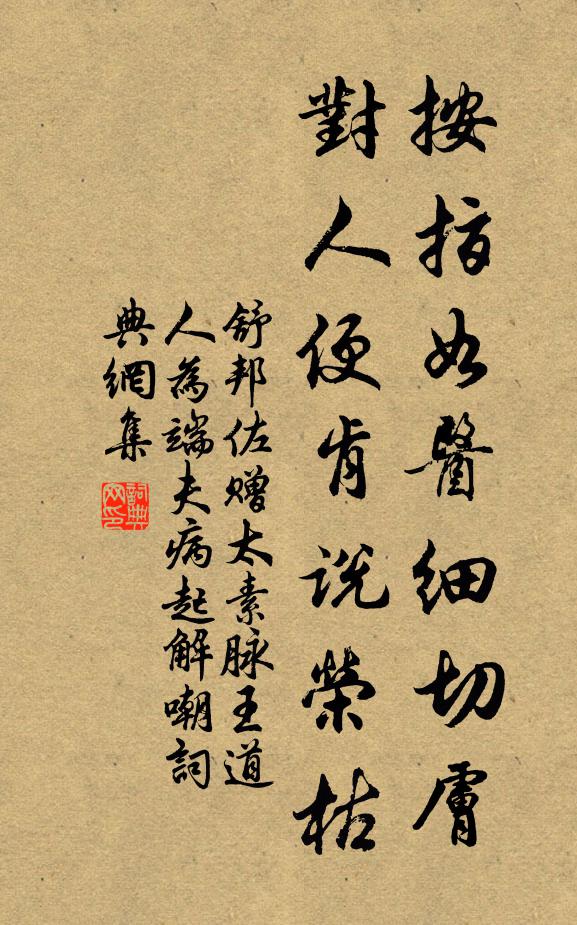 按指如醫細切膚
對人便肯說榮枯
舒邦佐贈太素脉王道
人為端夫病起解嘲詞
典網集
詞典
网印